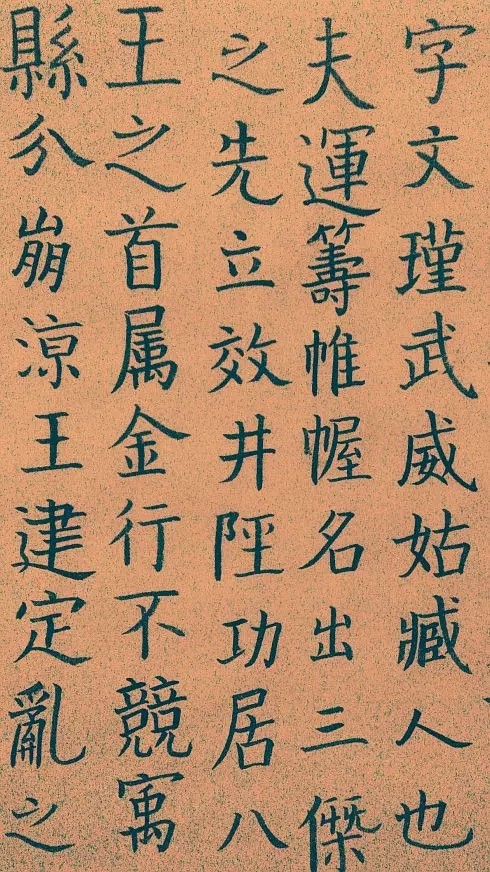 字文瑾武威姑臧人也
夫運籌帷幄名出三傑
之先立效井陘功居八
王之首属金行不競寓
縣分崩涼王建定亂之